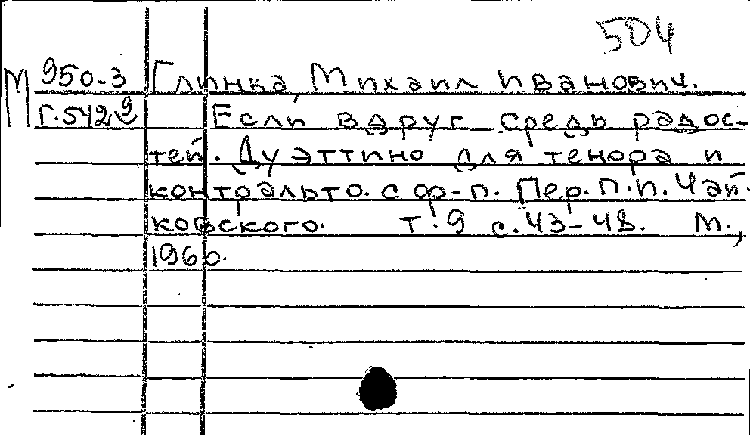 504
М 950-3 Глинка, Михаил Иванович.
Г.542 9 Если вдруг средь радос-
тей. Дуэттино для тенора и
контральто. с ф-п. Пер. П.И. Чай-
ковского. т. 9 с. 43-48. М.,
1960.